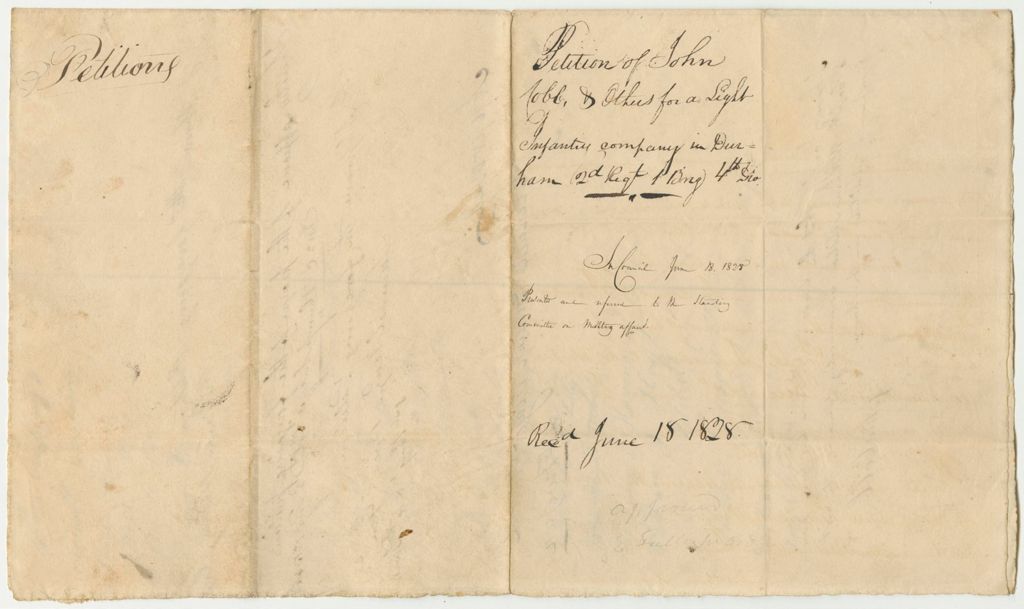 Petitions
Petition of John
Cobb, & Others for a Light
Infantry company in Dur=
ham 2d Regt 1 Brig 4th Divo.
In Council June 18. 1828
Presented and referred to the Standing
Committee on Military affairs
Rec'd June 18 1828.
approved